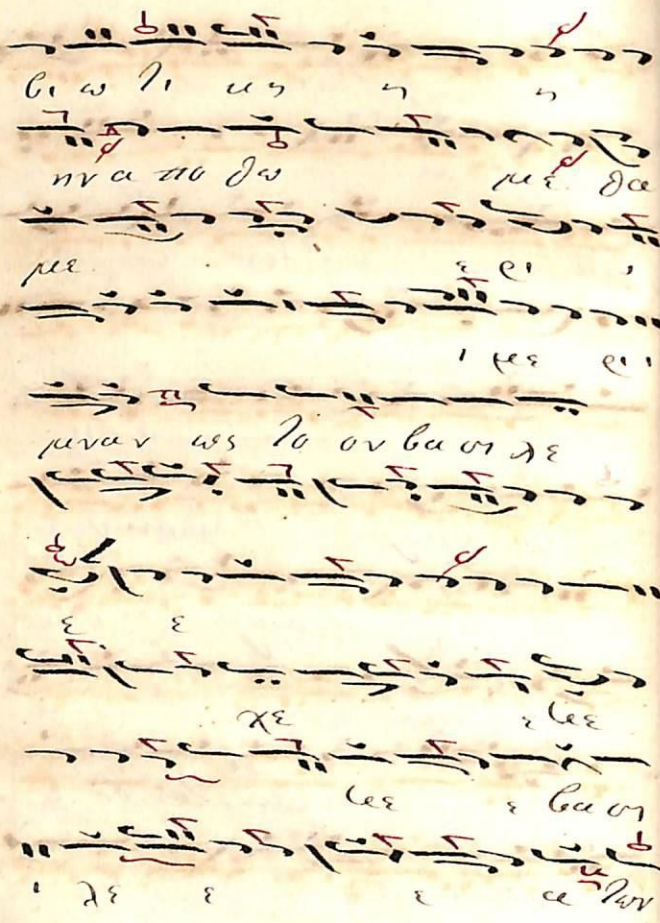 βι ω τι κη η η
ην α πο θω με θα
με ε ρι ι
ι με ρι ι
μναν ως το ον βα σι λε
ε ε
χε ε
ε βα σι
ι λε ε ε των